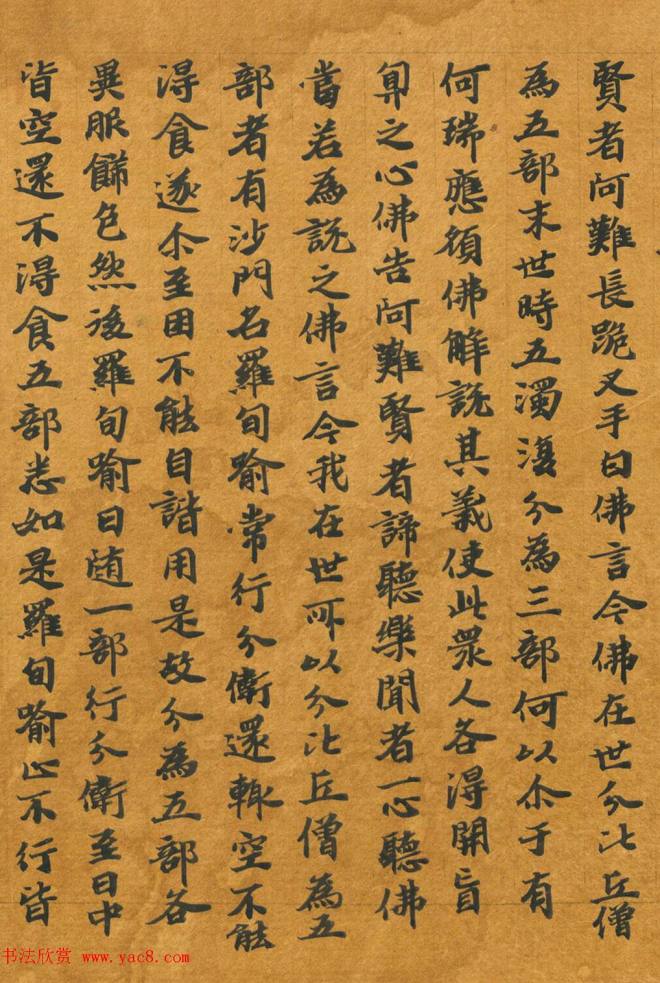 賢者阿難長跪叉手白佛言今佛在世分比丘僧
為五部末世時五濁復分為三部何以尒于有
何瑞應願佛解説其義使此衆人各得開盲
冥之心佛告阿難賢者諦聽樂聞者一心聽佛
當若為説之佛言今我在世所以分比丘僧為五
部者有沙門名羅旬喻常行分衛還輙空不能
得食遂尒至困不能自諧用是故分為五部各
異服餙色然後羅旬喻日随一部行分衛至日中
皆空還不得食五部悉如是羅旬喻止不行皆
书法欣赏 www.yac8.com